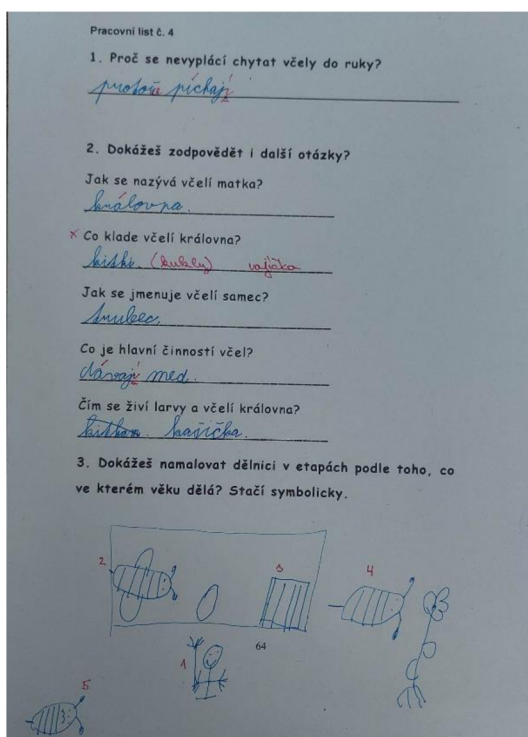 Pracovní list č. 4
1. Proč se nevyplácí chytat včely do ruky?
protože píchají
2. Dokážeš zodpovědět i další otázky?
Jak se nazývá včelí matka?
královna.
x Co klade včelí královna?
(kukly) vajíčka
Jak se jmenuje včelí samec?
Trubec.
Co je hlavní činností včel?
dávají med.
Čím se živí larvy a včelí královna?
kašička.
3. Dokážeš namalovat dělnici v etapách podle toho, co
ve kterém věku dělá? Stačí symbolicky.
2
3
4
64
1
5